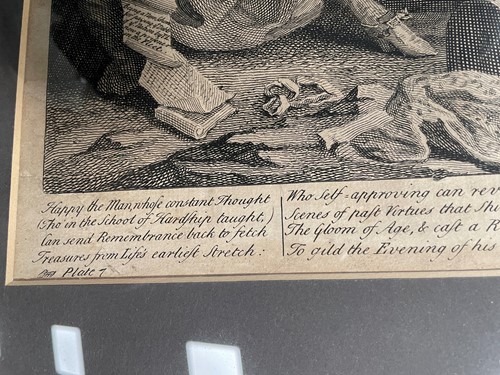 Happy the Man, whose constant Thought
(Tho' in the School of Hardship taught,)
Can send Remembrance back to fetch
Treasures from Life's earliest Stretch:
Plate 7
Who Self=approving can rev
Scenes of past Virtues that Shi
The Gloom of Age, & cast a R
To gild the Evening of his